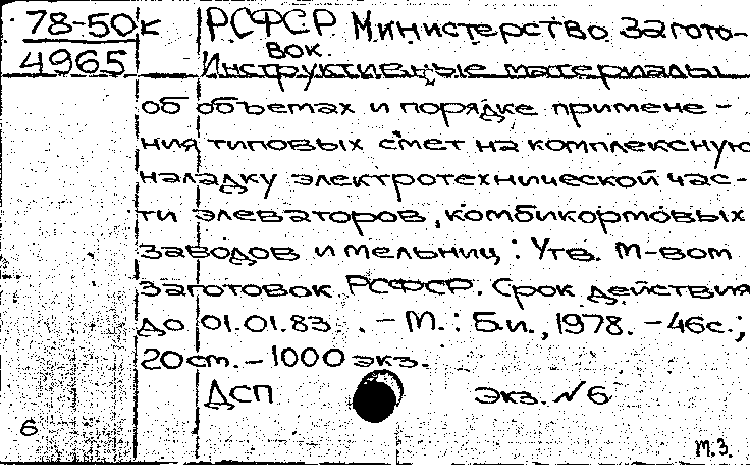 78-50к РСФСР Министерство Загото-
4965 вок.
Инструктивные материалы
об объемах и порядке примене-
ния типовых смет на комплексную
наладку электротехнической час-
ти элеваторов, комбикормовых
заводов и мельниц: Утв. М-вом
заготовок РСФСР. Срок действия
до 01.01.83. - М.: Б.и., 1978. - 46с.;
20см. - 1000 экз.
ДСП экз. № 6
6
м.з.